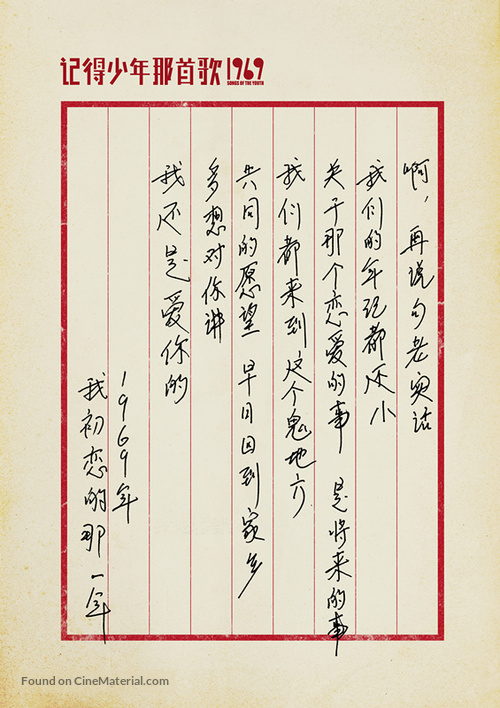 记得少年那首歌1969
SONGS OF THE YOUTH
啊，再说句老实话
我们的年纪都还小
关于那个恋爱的事 是将来的事
我们都来到这个鬼地方
共同的愿望 早日回到家乡
多想对你讲
我还是爱你的
1969年
我初恋的那一年
Found on CineMaterial.com